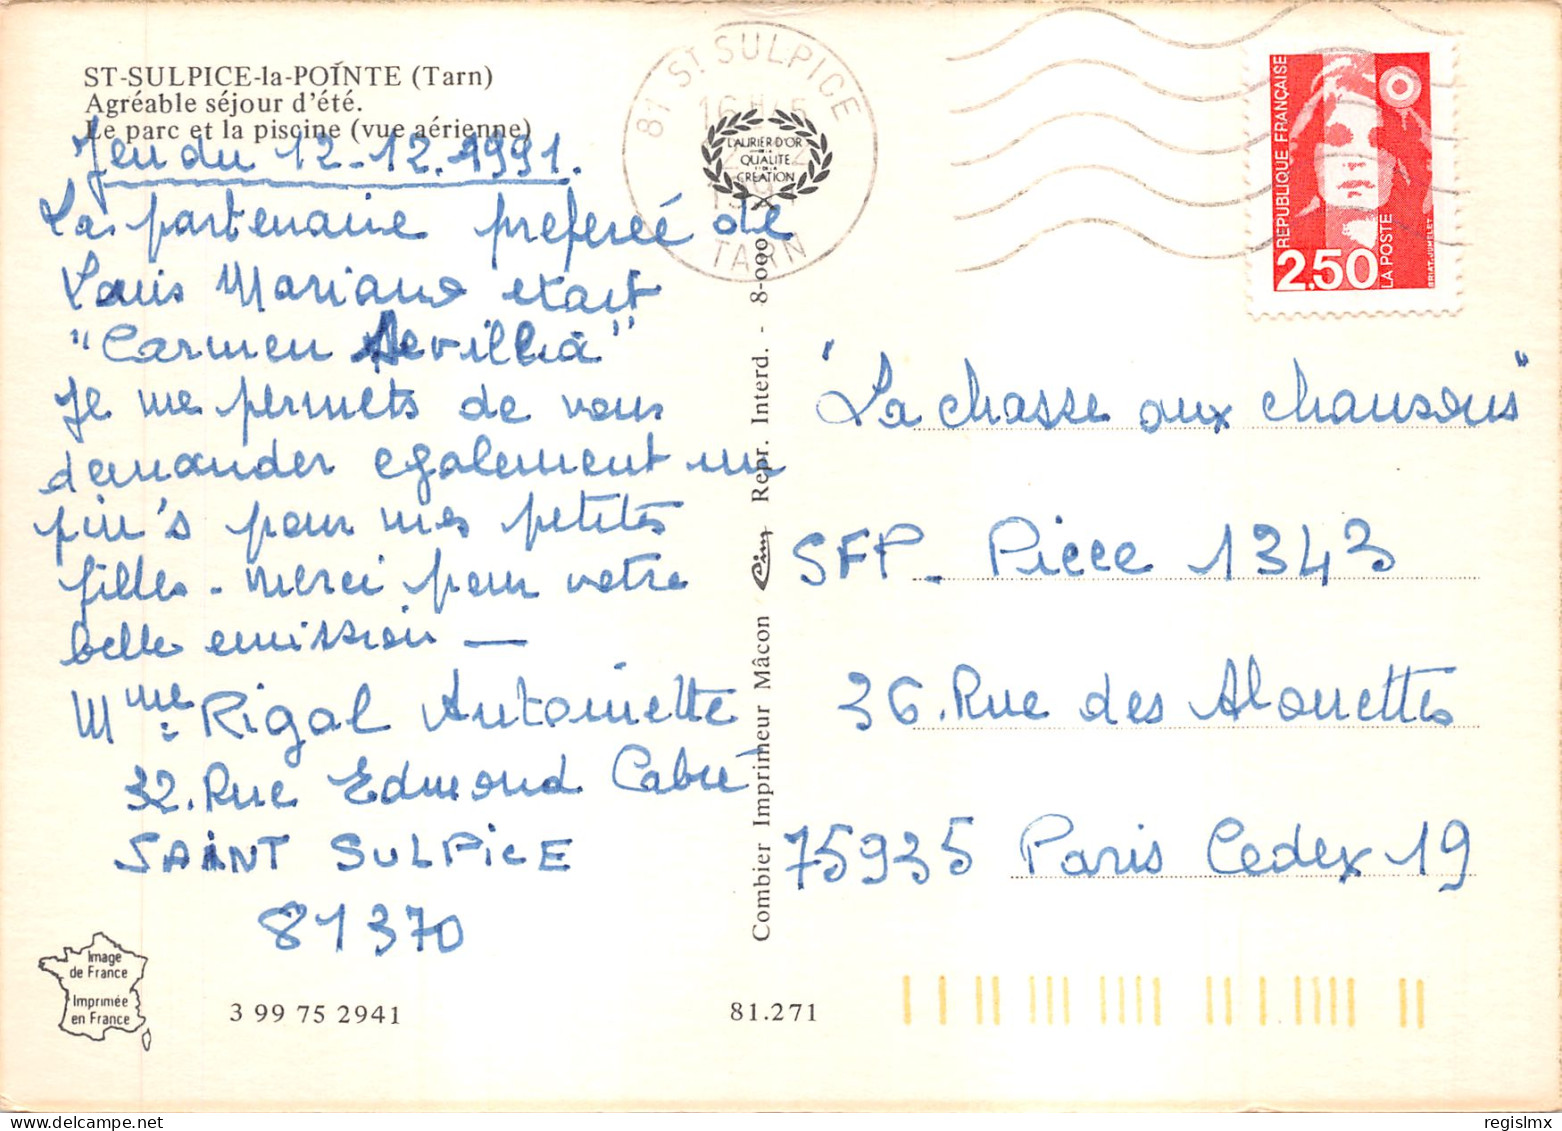 ST-SULPICE-la-POINTE (Tarn)
Agréable séjour d'été.
Le parc et la piscine (vue aérienne)
Jeudu 12-12.1991.
La partenaire preferéé de
Louis Mariano etait
"Carmen Sevillia"
Je me permets de vous
demander egalement un
pin's pour mes petites
filles - merci pour votre
belle emission —
Mme: RIGAL Antoinette
32. Rue Edmond Cabié
SAINT SULPICE
81370
Image
de France
Imprimée
en France
3 99 75 2941
81.271
Combier Imprimeur Mâcon Cim Repr. Interd. - 8-000
81 ST SULPICE
16H15
TARN
LAURIER D'OR
DE LA
QUALITE
ET DE LA
CREATION
REPUBLIQUE FRANÇAISE
2,50
LA POSTE
BRIAT-JUMELET
"La chasse aux chansons"
SFP - Piece 1343
36. Rue des Alouettes
75935 Paris Cedex 19
regislmx